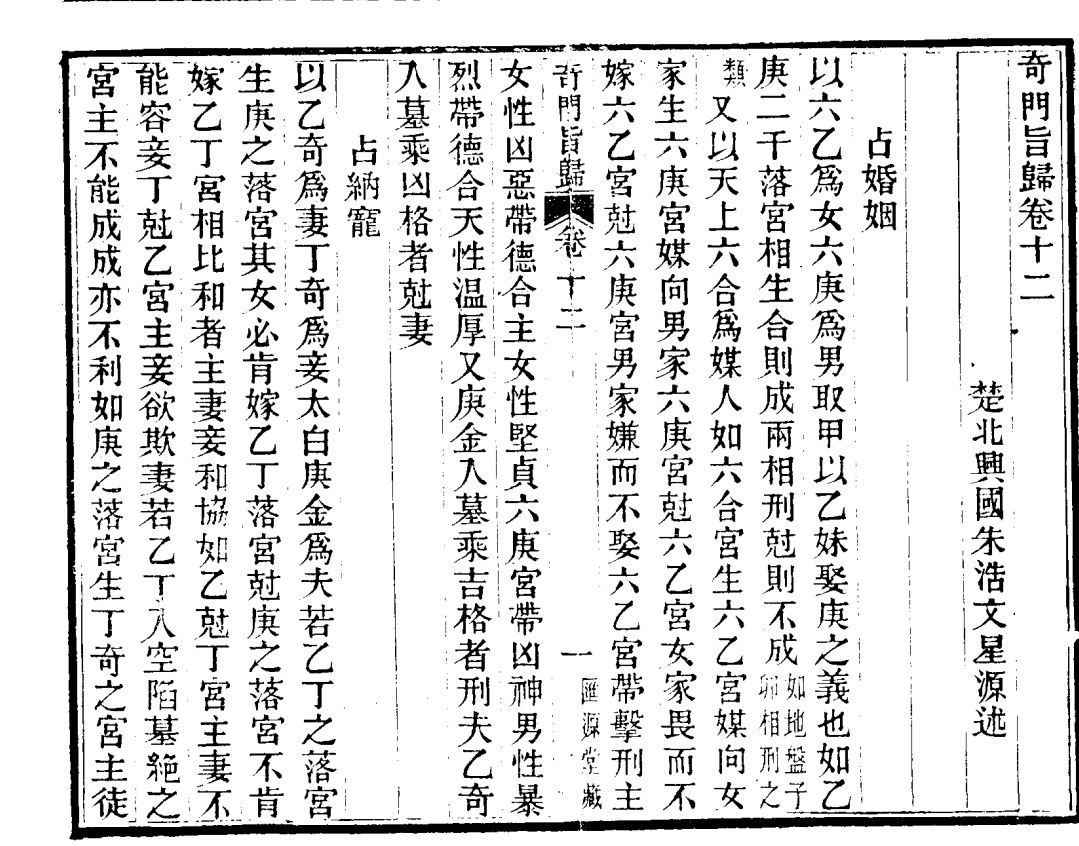 奇門旨歸卷十二
楚北興國朱浩文星源述
占婚姻
以六乙爲女六庚爲男取甲以乙妹娶庚之義也如乙
庚二干落宮相生合則成兩相刑尅則不成如地盤子卯相刑之
類又以天上六合爲媒人如六合宮生六乙宮媒向女
家生六庚宮媒向男家六庚宮尅六乙宮女家畏而不
嫁六乙宮尅六庚宮男家嫌而不娶六乙宮帶擊刑主
奇門旨歸 卷十二 一 匯源堂藏
女性凶惡帶德合主女性堅貞六庚宮帶凶神男性暴
烈帶德合天性温厚又庚金入墓乘吉格者刑夫乙奇
入墓乘凶格者尅妻
占納寵
以乙奇爲妻丁奇爲妾太白庚金爲夫若乙丁之落宮
生庚之落宮其女必肯嫁乙丁落宮尅庚之落宮不肯
嫁乙丁宮相比和者主妻妾和協如乙尅丁宮主妻不
能容妾丁尅乙宮主妾欲欺妻若乙丁入空陷墓絶之
宮主不能成成亦不利如庚之落宮生丁奇之宮主徒